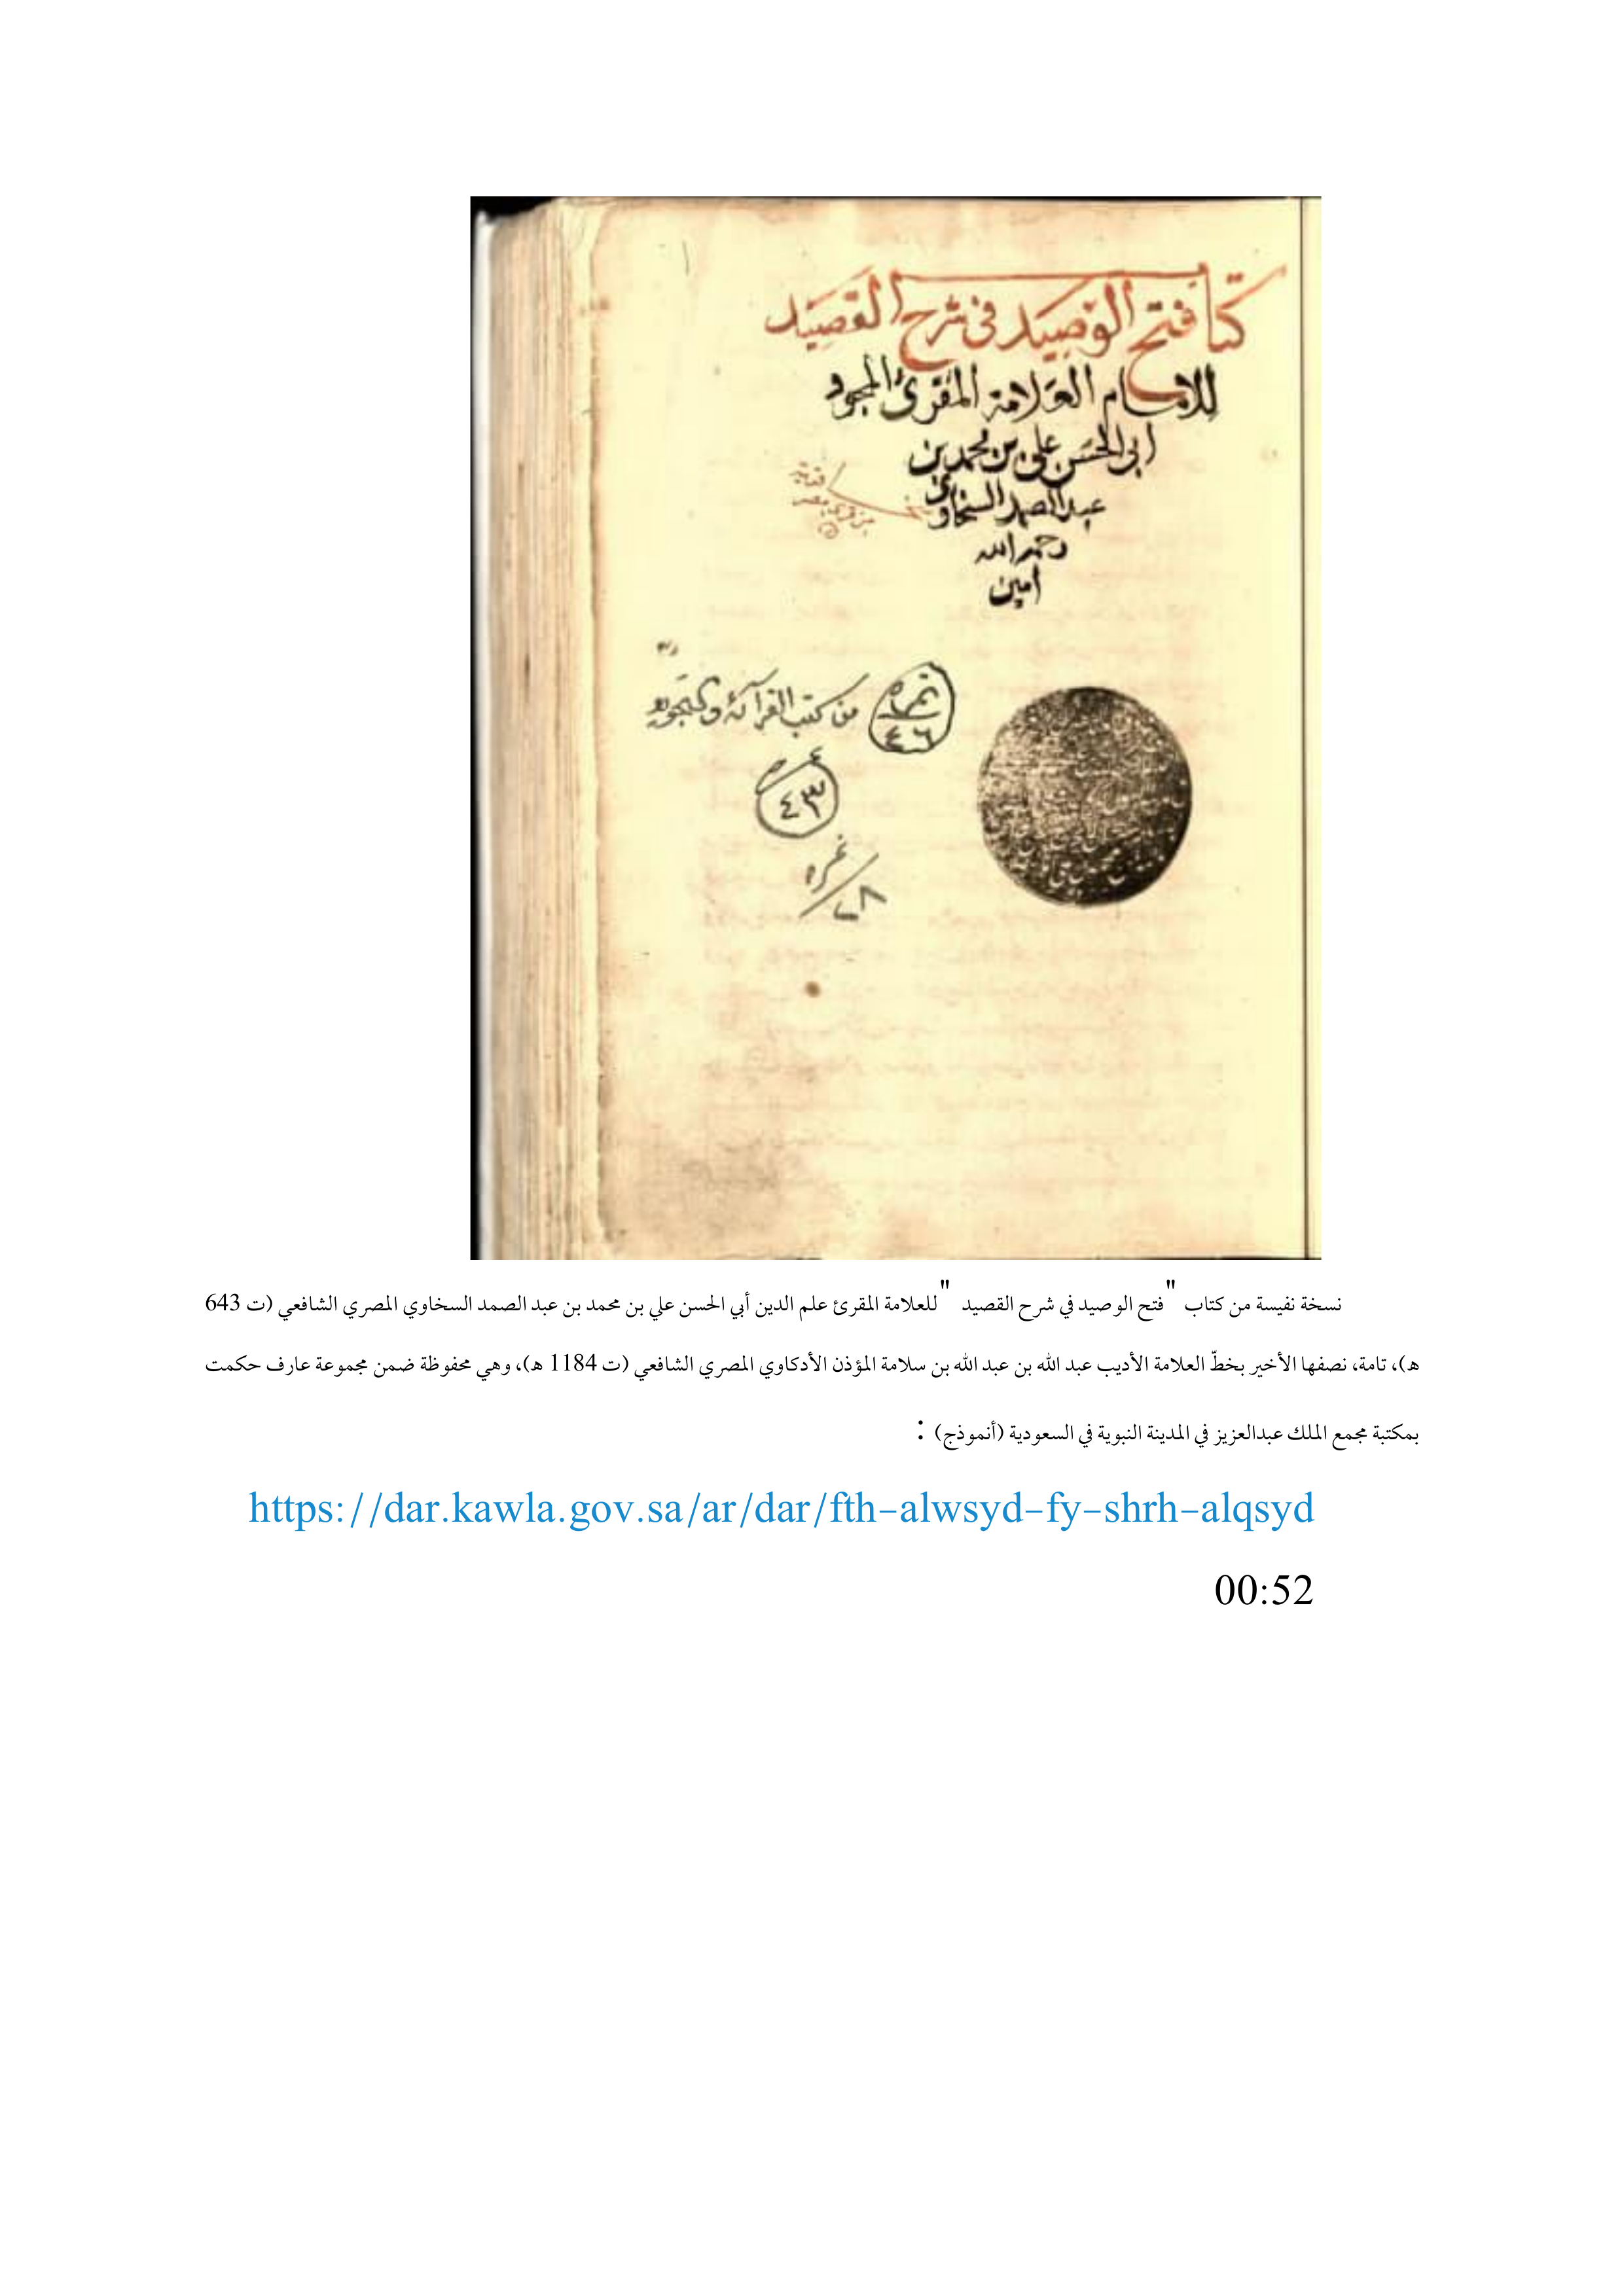 كتاب فتح الوصيد في شرح القصيد
للامام العلامة المقرئ المجود
ابي الحسن علي بن محمد بن
عبد الصمد السخاوي
رحمه الله
امين
قرية
من قرى مصر
نمرة
٤٦
من كتب القرآءة والتجويد
٤٣
نمره
٢٨
نسخة نفيسة من كتاب "فتح الوصيد في شرح القصيد" للعلامة المقرئ علم الدين أبي الحسن علي بن محمد بن عبد الصمد السخاوي المصري الشافعي (ت 643
هـ)، تامة، نصفها الأخير بخطّ العلامة الأديب عبد الله بن عبد الله بن سلامة المؤذن الأدكاوي المصري الشافعي (ت 1184 هـ)، وهي محفوظة ضمن مجموعة عارف حكمت
بمكتبة مجمع الملك عبدالعزيز في المدينة النبوية في السعودية (أنموذج) :
https://dar.kawla.gov.sa/ar/dar/fth-alwsyd-fy-shrh-alqsyd
00:52